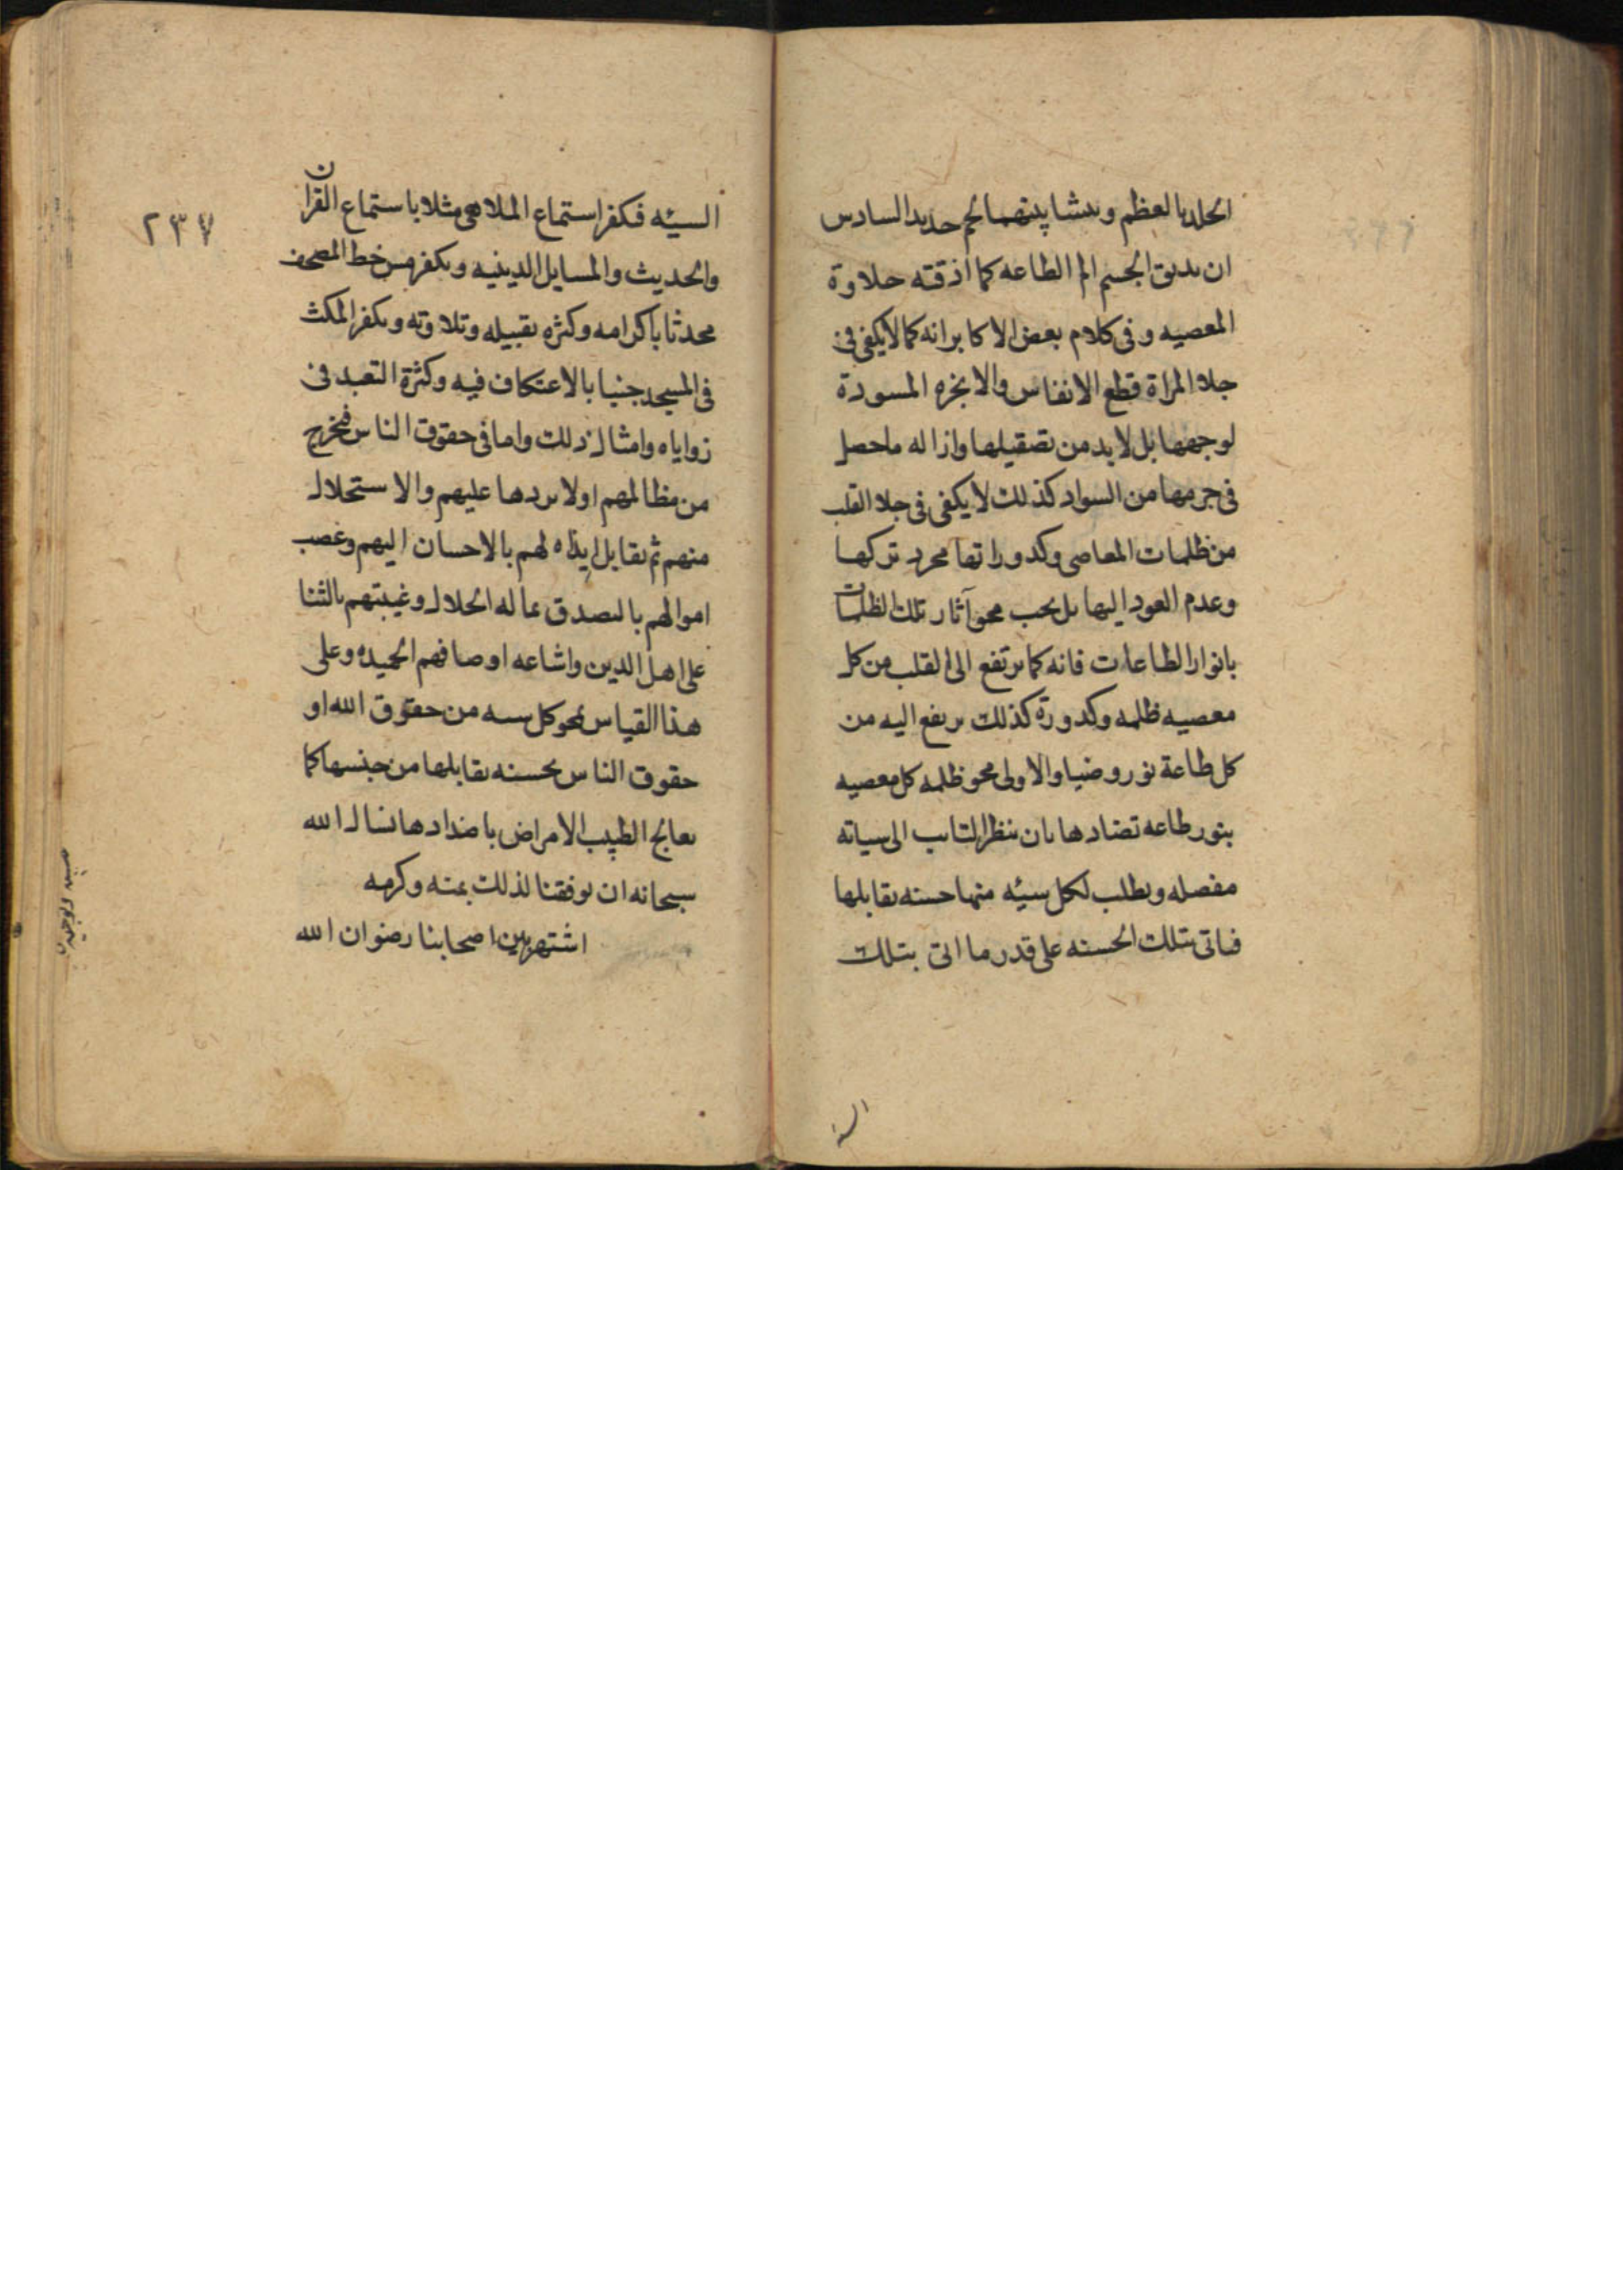 الجلد بالعظم وينشا بينهما لحم جديد السادس
ان يذيق الجسم الم الطاعه كما اذقته حلاوة
المعصيه وفى كلام بعض الاكابر انه كما لا يكفى فى
جلا المراة قطع الانفاس والابخره المسودة
لوجهها بل لا بد من تصقيلها وازاله ما حصل
فى جرمها من السواد كذلك لا يكفى فى جلا القلب
من ظلمات المعاصى وكدوراتها مجرد تركها
وعدم العود اليها بل يجب محو آثار تلك الظلمات
بانوار الطاعات فانه كما يرتفع الى القلب من كل
معصيه ظلمه وكدورة كذلك يرتفع اليه من
كل طاعة نور وضيا والاولى محو ظلمه كل معصيه
بنور طاعه تضادها بان ينظر التايب الى سياته
مفصله ويطلب لكل سيئه منها حسنه تقابلها
فياتى بتلك الحسنه على قدر ما اتى بتلك
السيئه
٢٣٧
السيئه فيكفر استماع الملاهى مثلا باستماع القران
والحديث والمسايل الدينيه ويكفر مس خط المصحف
محدثا باكرامه وكثره تقبيله وتلاوته ويكفر المكث
فى المسجد جنبا بالاعتكاف فيه وكثرة التعبد فى
زواياه وامثال ذلك واما فى حقوق الناس فيخرج
من مظالمهم اولا بردها عليهم والاستحلال
منهم ثم يقابل ايذاه لهم بالاحسان اليهم وغصب
اموالهم بالتصدق بماله الحلال وغيبتهم بالثنا
على اهل الدين واشاعه اوصافهم الحميده وعلى
هذا القياس يمحو كل سيئه من حقوق الله او
حقوق الناس بحسنه تقابلها من جنسها كما
يعالج الطبيب الامراض باضدادها نسال الله
سبحانه ان يوفقنا لذلك بمنه وكرمه
اشتهر بين اصحابنا رضوان الله